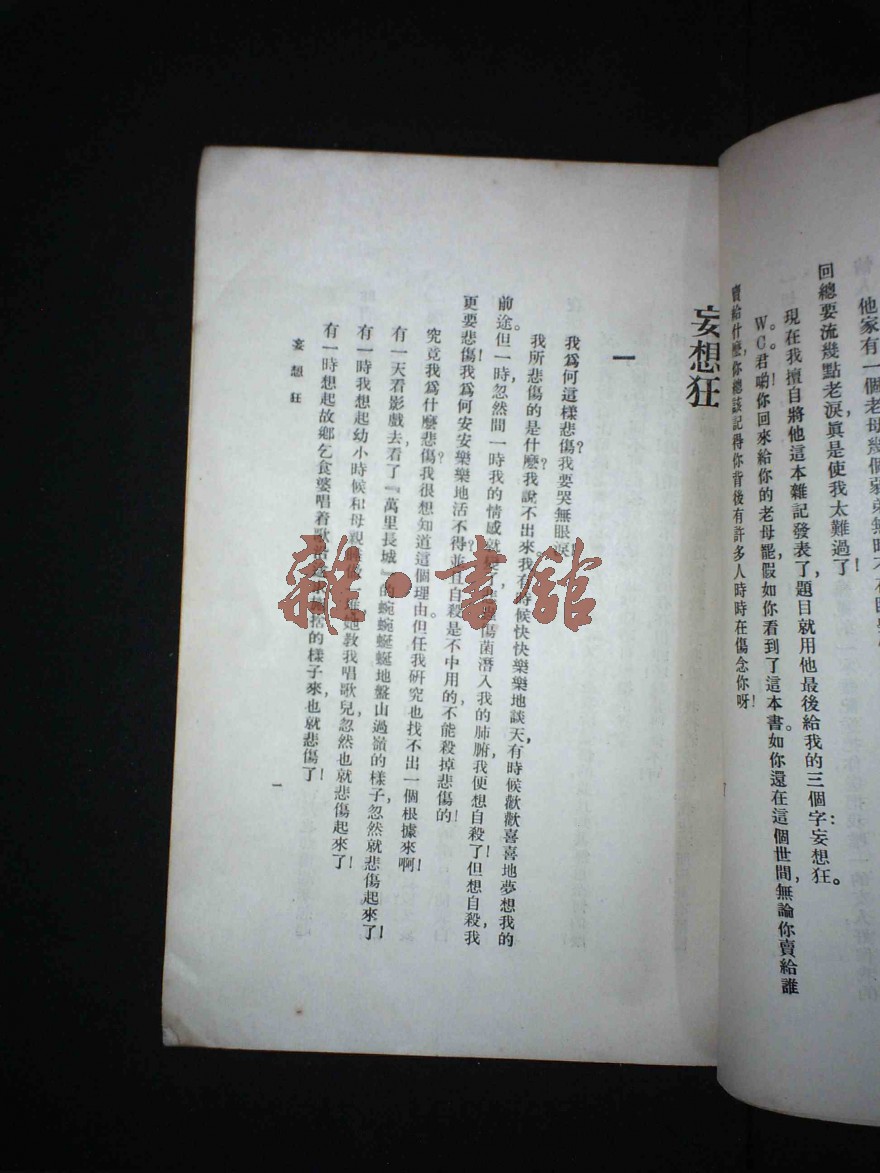 他家有一個老母幾個弱弟無時不在
回總要流幾點老淚，眞是使我太難過了！
現在我擅自將他這本雜記發表了，題目就用他最後給我的三個字：妄想狂。
WC君喲！你回來給你的老母罷。假如你看到了這本書，如你還在這個世間，無論你賣給誰
賣給什麼，你總該記得你背後有許多人時時在傷念你呀！
妄想狂
一
我爲何這樣悲傷？我要哭無眼淚
我所悲傷的是什麼？我說不出來。我有時候快快樂樂地談天，有時候歡歡喜喜地夢想我的
前途。但一時，忽然間一時我的情感就變了，悲傷菌潛入我的肺腑，我便想自殺了！但想自殺，我
更要悲傷！我爲何安安樂樂地活不得？並且自殺是不中用的，不能殺掉悲傷的！
究竟我爲什麼悲傷？我很想知道這個理由，但任我研究也找不出一個根據來啊！
有一天看影戲去，看了『萬里長城』的蜿蜿蜒蜒地盤山過嶺的樣子，忽然就悲傷起來了！
有一時我想起幼小時候和母親 她教我唱歌兒，忽然也就悲傷起來了！
有一時想起故鄉乞食婆唱着歌 捨的樣子來，也就悲傷了！
妄想狂
一
雜·書館